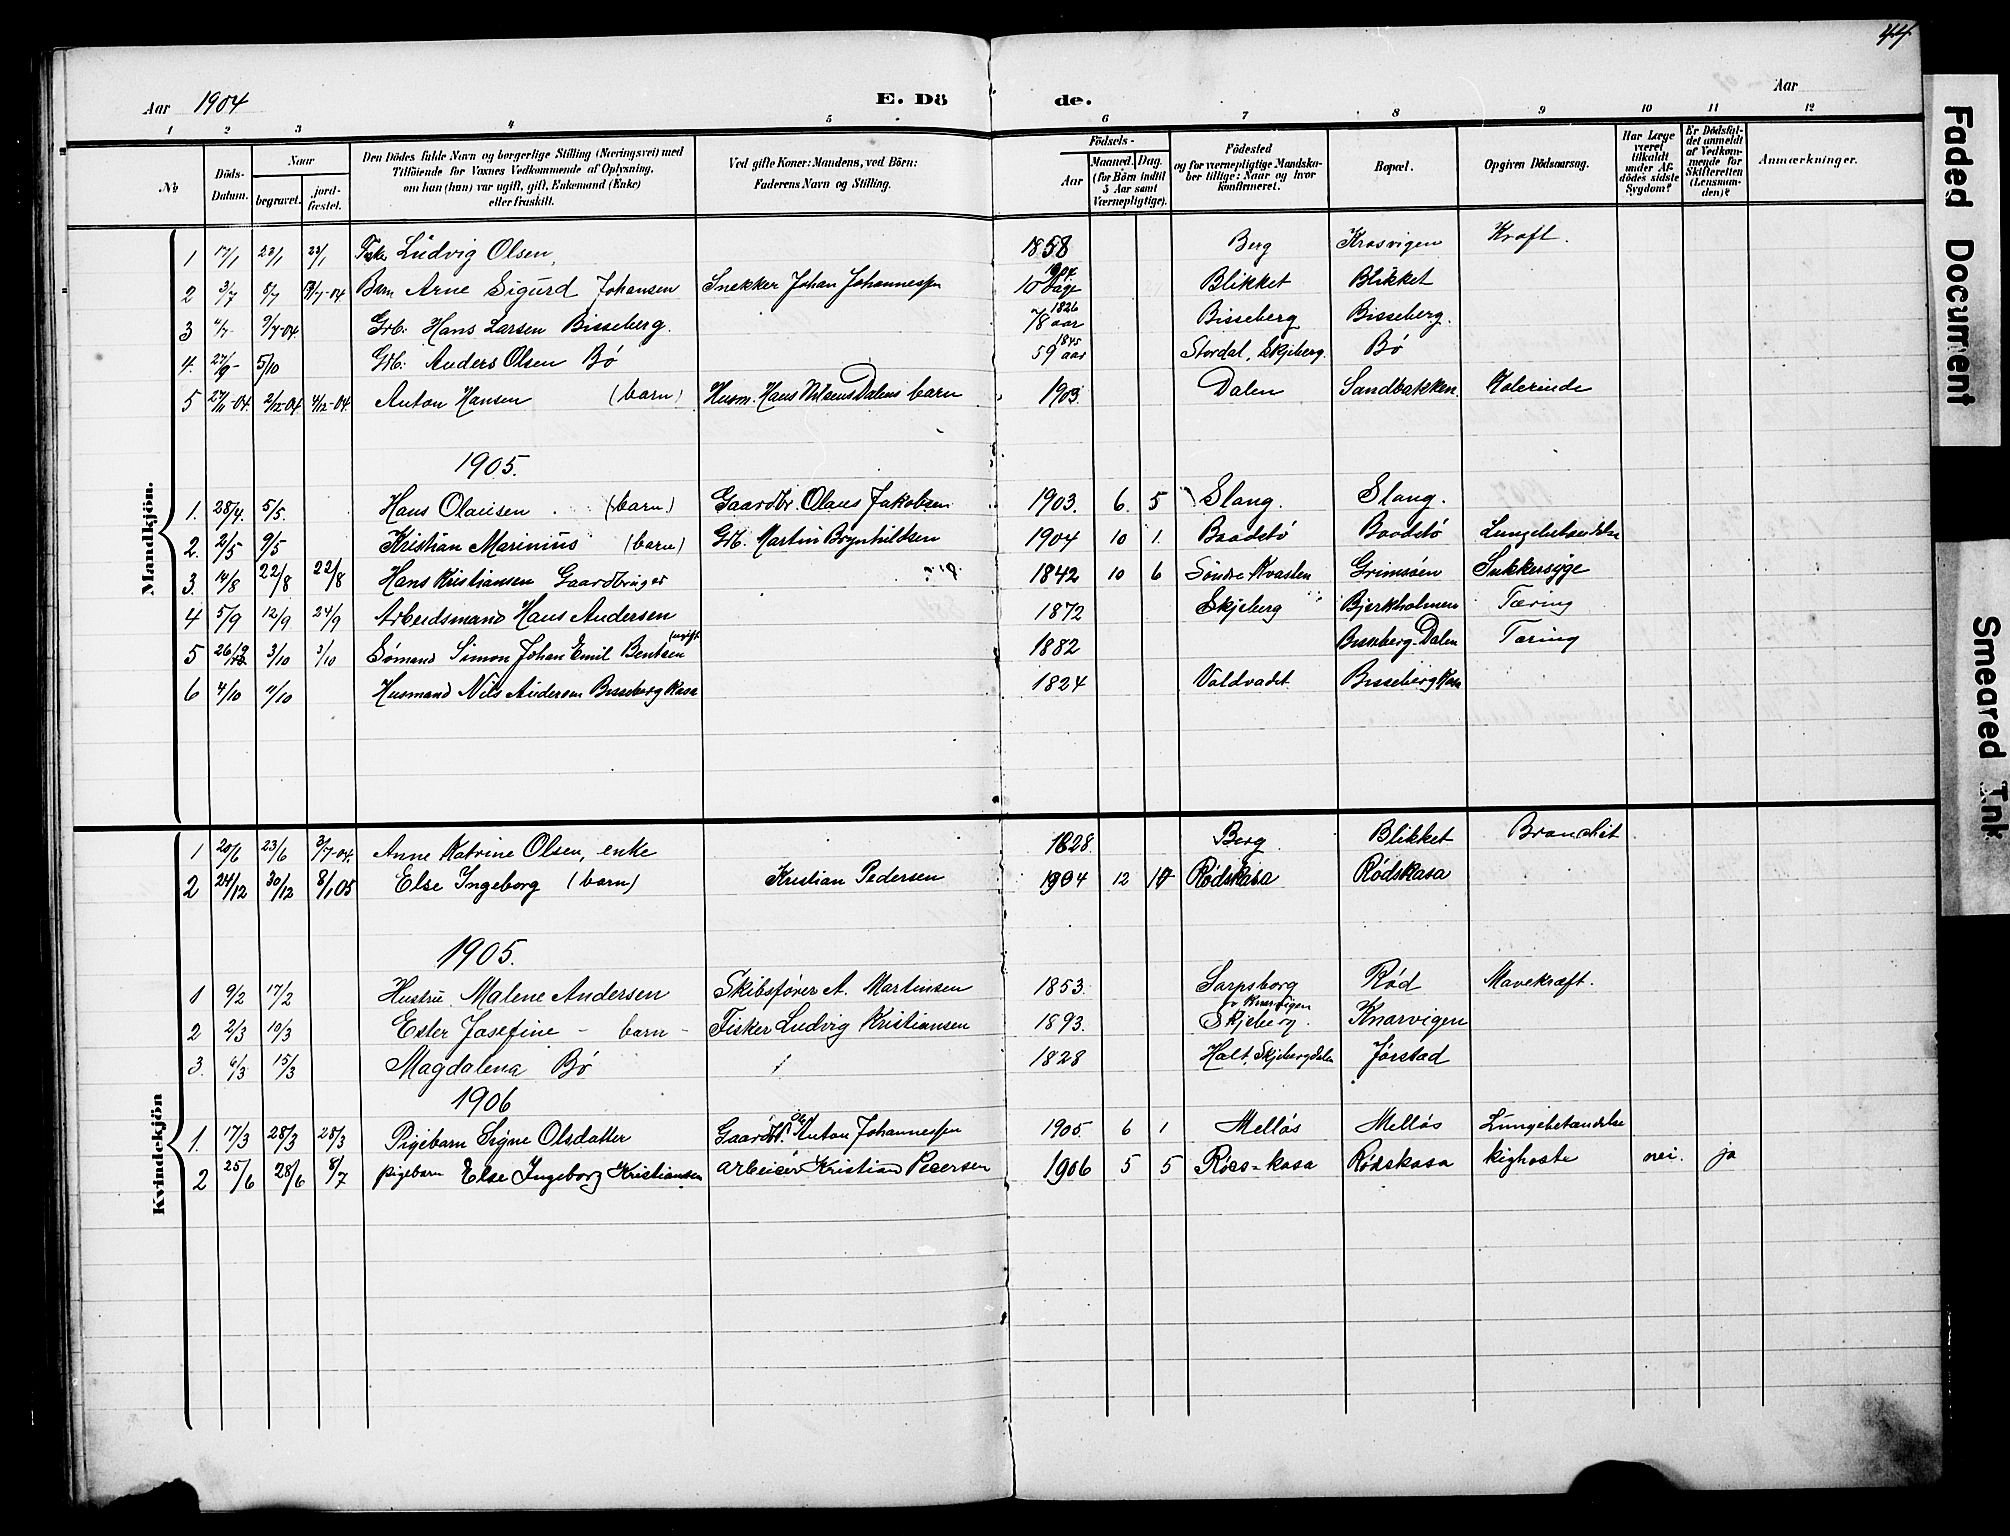 44
Aar 1904 E. Dö de. Aar
1 2 3 4 5 6 7 8 9 10 11 12
№ Döds-Datum. Naar begravet. jord-fæstet. Den Dödes fulde Navn og borgerlige Stilling (Næringsvei) med Tilföiende for Voxnes Vedkommende af Oplysning, om han (hun) var ugift, gift, Enkemand (Enke) eller fraskilt. Ved gifte Koner: Mandens, ved Börn: Faderens Navn og Stilling. Födsels- Aar Maaned. Dag. (for Börn indtil 5 Aar samt Værnepligtige). Födested og for værnepligtige Mandska-ber tillige: Naar og hvor konfirmeret. Bopæl. Opgiven Dödsaarsag. Har Læge været tilkaldt under Af-dödes sidste Sygdom? Er Dödsfal-det anmeldt af Vedkom-mende for Skifteretten (Lensman-den)? Anmærkninger.
Mandkjön.
1 17/1 23/1 23/1 Fisker Ludvig Olsen, 1858 Berg Krosvigen Kræft.
2 3/7 5/7 3/7-04 Barn Arne Sigurd Johansen Snekker Johan Johannessen 1904 10 Dage Blikket Blikket
3 4/7 9/7-04. Grb: Hans Larsen Bisseberg. 1826 78 aar Bisseberg Bisseberg.
4. 27/9- 5/10 Grb: Anders Olsen Bø 1845 59 aar Stordal, Skjeberg. Bø
5 27/11-04. 2/12-04 4/12-04. Anton Hansen (barn) Husm. Hans Nilsens Dalens barn 1903 Dalen Sandbakken. Kolerinde
1905.
1. 28/4. 5/5. Hans Olausen (barn) Gaardbr. Olaus Jakobsen 1903. 6. 5 Slang. Slang.
2. 2/5 9/5 Kristian Marinius (barn) Grb. Martin Brynhildsen 1904 10 1. Baadstø Baadstø Lungebetændelse
3. 14/8 22/8 22/8 Hans Kristiansen Gaardbruger 1842 10 6 Søndre Kvasten Grimsøen Sukkersyge
4 5/9 12/9 24/9 Arbeidsmand Hans Andersen 1872 Skjeberg Bjerkholmen Tæring
5 26/9 3/10 3/10 Sømand Simon Johan Emil Bentsen (ugift 1882 Bisseberg Dalen Tæring
6 4/10 11/10 Husmand Nils Andersen Bisseberg Kasa 1824 Valdvadet Bisseberg Kasa
Kvindekjön
1 20/6 23/6 3/7-04. Anne Katrine Olsen, enke 1828. Berg. Blikket Bronchit
2 24/12 30/12 8/1 05 Else Ingeborg (barn) Kristian Pedersen 1904 12 10 Rødskasa Rødskasa
1905.
1 9/2 17/2 Hustru Malene Andersen Skibsfører A. Martinsen 1853. Sarpsborg Rød Mavekræft.
2 2/3 10/3 Ester Josefine - barn - Fisker Ludvig Kristiansen 1893. Knarvigen Skjeberg. Knarvigen
3. 6/3 15/3 Magdalena Bø 1828 Halt, Skjebergdalen Jørstad
1906
1. 17/3 28/3 28/3 Pigebarn Signe Olsdatter Gaardbr. Ole Anton Johannessen 1905. 6 1 Melløs Melløs Lungebetændelse
2 25/6 28/6 8/7 pigebarn Else Ingeborg Kristiansen arbeider Kristian Pedersen 1906 5 5 Røds=kasa Rødskasa kighoste nei. ja
Faded Document
Smeared Ink